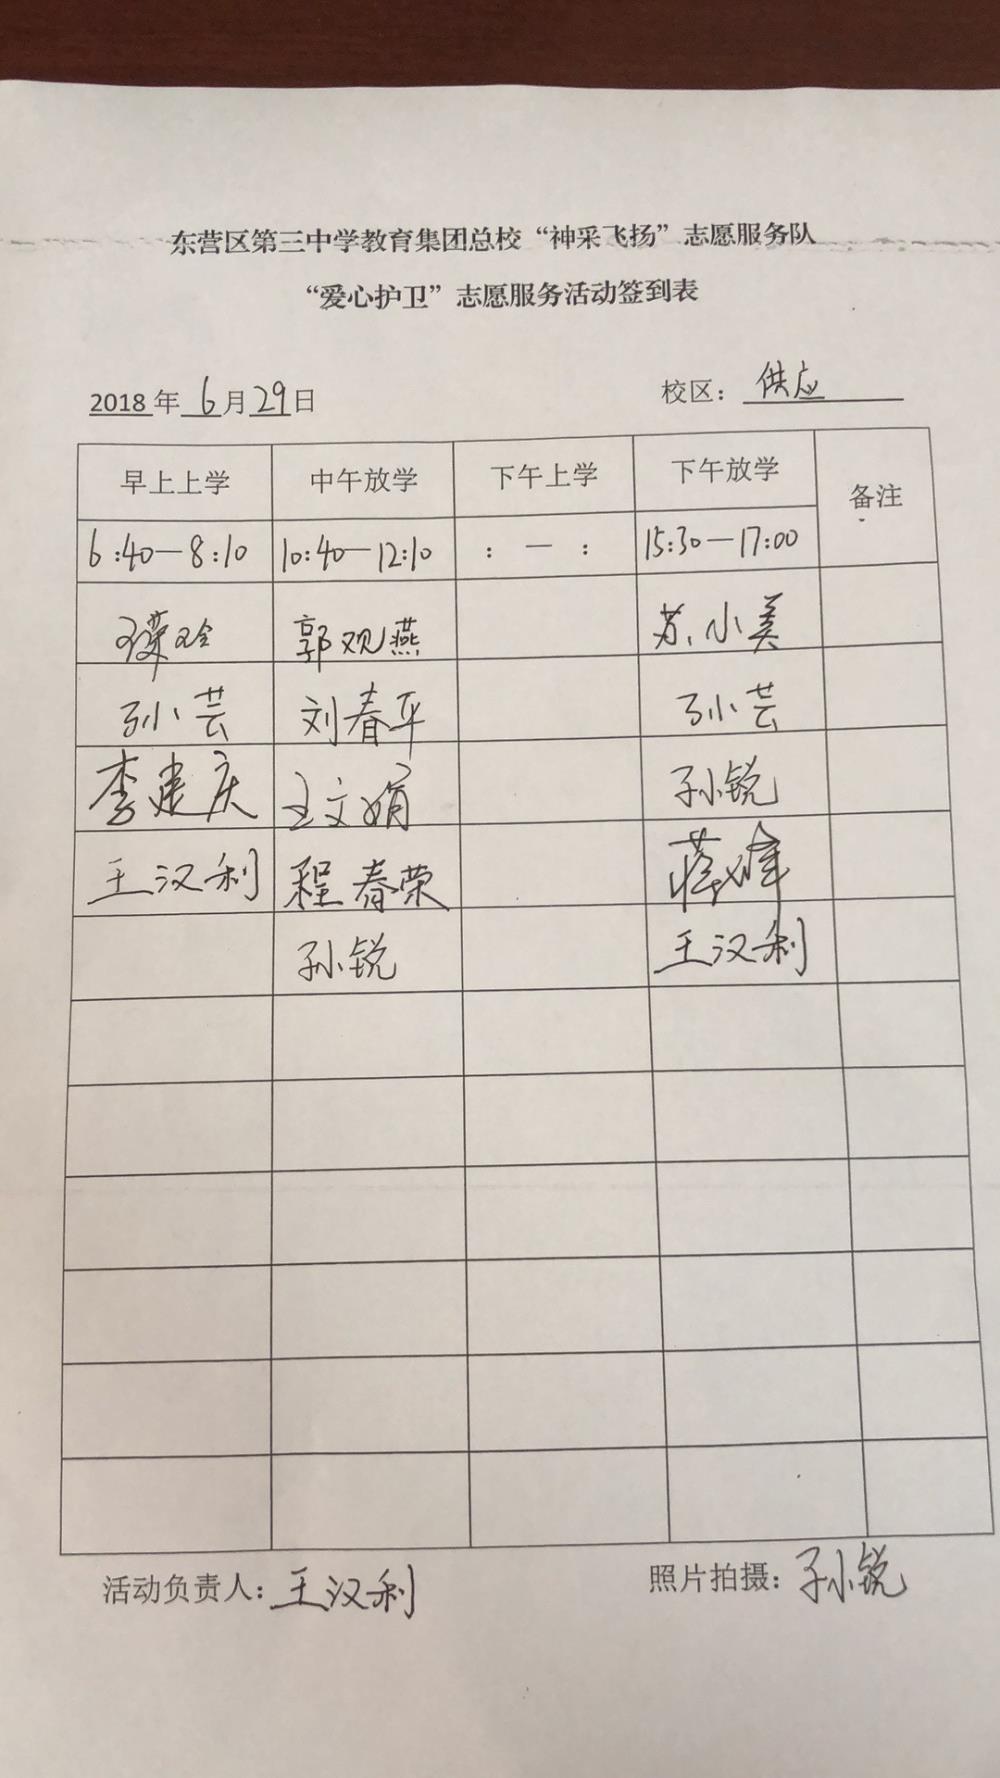 东营区第三中学教育集团总校“神采飞扬”志愿服务队
“爱心护卫”志愿服务活动签到表
2018年6月29日 校区：供应
早上上学 中午放学 下午上学 下午放学 备注
6:40—8:10 10:40—12:10 : — : 15:30—17:00
郭观燕 苏小美
孙芸 刘春平 孙芸
李建庆 王文娟 孙锐
王汉利 程春荣 蒋峰
孙锐 王汉利
活动负责人：王汉利 照片拍摄：孙锐